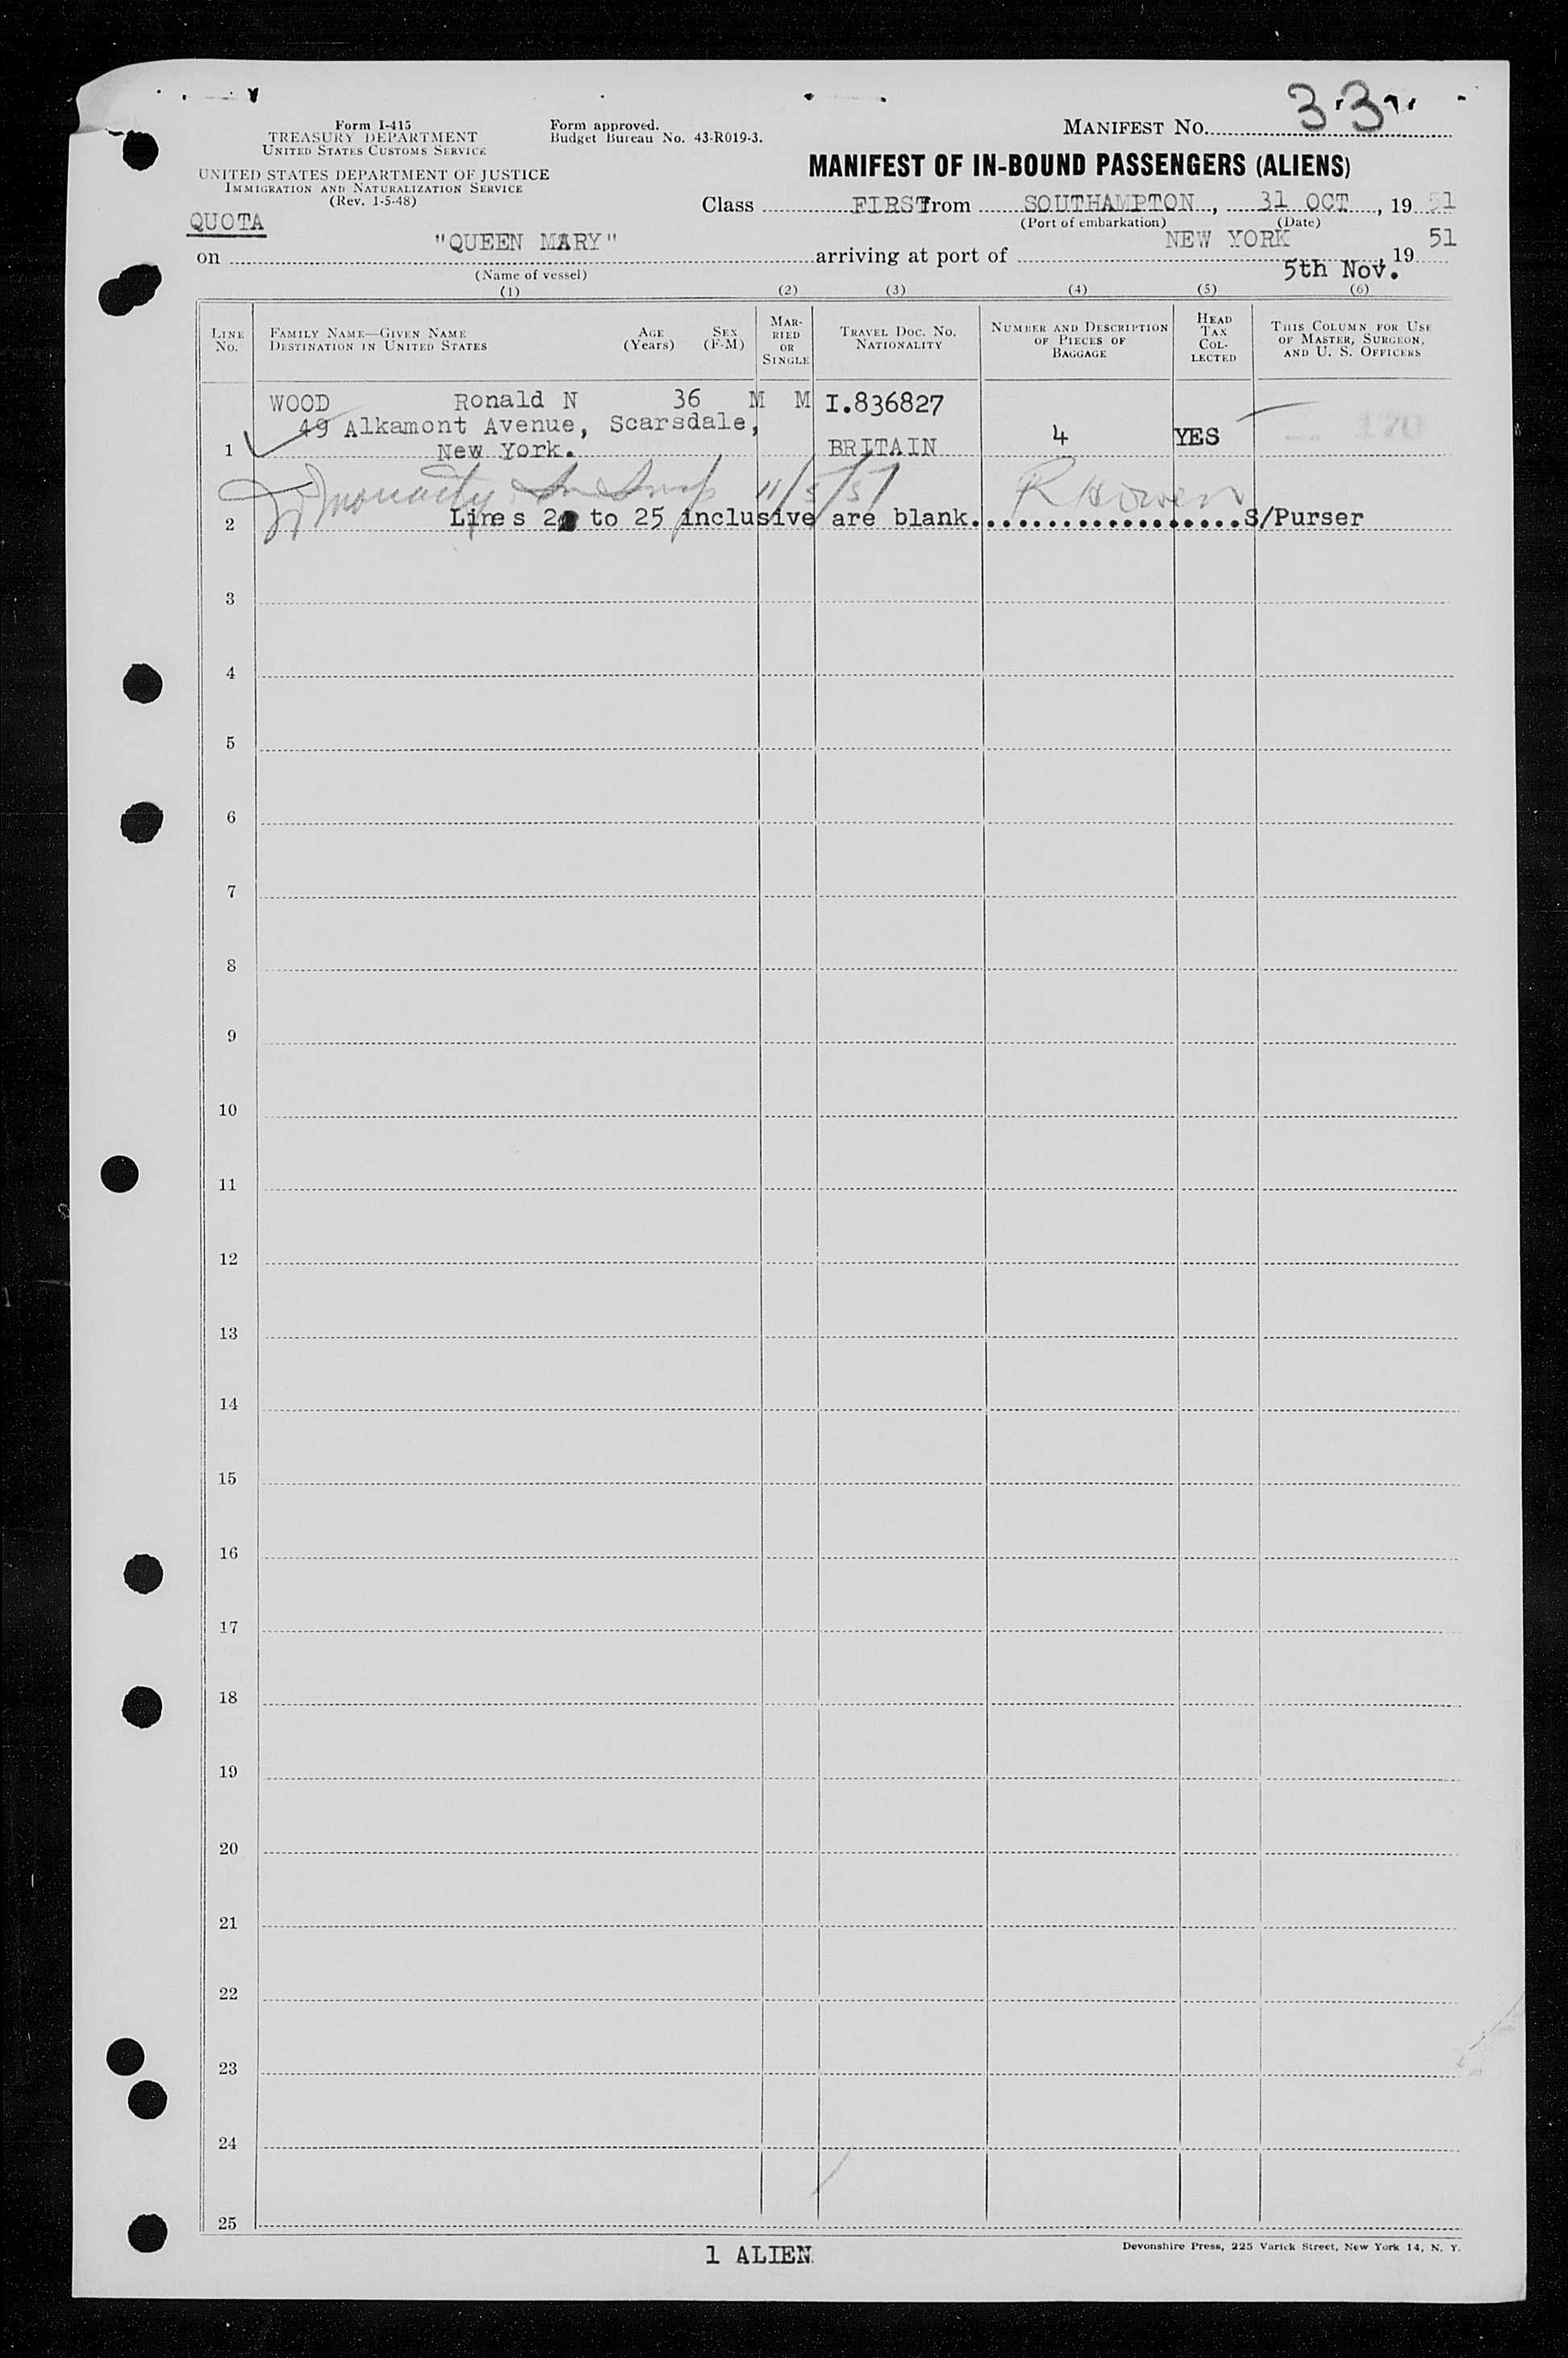 Form I-415
TREASURY DEPARTMENT
UNITED STATES CUSTOMS SERVICE
UNITED STATES DEPARTMENT OF JUSTICE
IMMIGRATION AND NATURALIZATION SERVICE
(Rev. 1-5-48)
Form approved.
Budget Bureau No. 43-R019-3.
MANIFEST NO. 33
MANIFEST OF IN-BOUND PASSENGERS (ALIENS)
QUOTA
Class FIRST from SOUTHAMPTON, 31 OCT, 1951
(Port of embarkation) (Date)
on "QUEEN MARY" arriving at port of NEW YORK 5th Nov. 1951
(Name of vessel)
(1) (2) (3) (4) (5) (6)
LINE NO.
FAMILY NAME—GIVEN NAME
DESTINATION IN UNITED STATES
AGE (Years)
SEX (F-M)
MARRIED OR SINGLE
TRAVEL DOC. NO.
NATIONALITY
NUMBER AND DESCRIPTION OF PIECES OF BAGGAGE
HEAD TAX COLLECTED
THIS COLUMN FOR USE OF MASTER, SURGEON, AND U. S. OFFICERS
WOOD Ronald N 36 M M I.836827
49 Alkamont Avenue, Scarsdale,
1 New York. BRITAIN 4 YES
11/5/51
2 Lines 2 to 25 inclusive are blank...................S/Purser
3
4
5
6
7
8
9
10
11
12
13
14
15
16
17
18
19
20
21
22
23
24
25
1 ALIEN
Devonshire Press, 225 Varick Street, New York 14, N. Y.